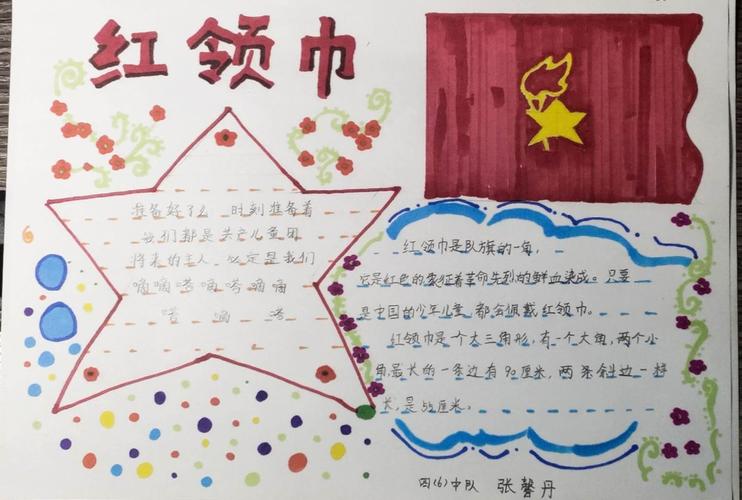 红领巾
准备好了么 时刻准备着
我们都是共产儿童团
将来的主人 必定是我们
嘀嘀嗒嘀嗒嘀嘀
嗒 嘀 嗒
红领巾是队旗的一角,
它是红色的象征着革命先烈的鲜血染成。只要
是中国的少年儿童 都会佩戴红领巾。
红领巾是一个大三角形,有一个大角,两个小
角,最长的一条边有90厘米,两条斜边一样
长,是55厘米。
四(6)中队 张馨丹